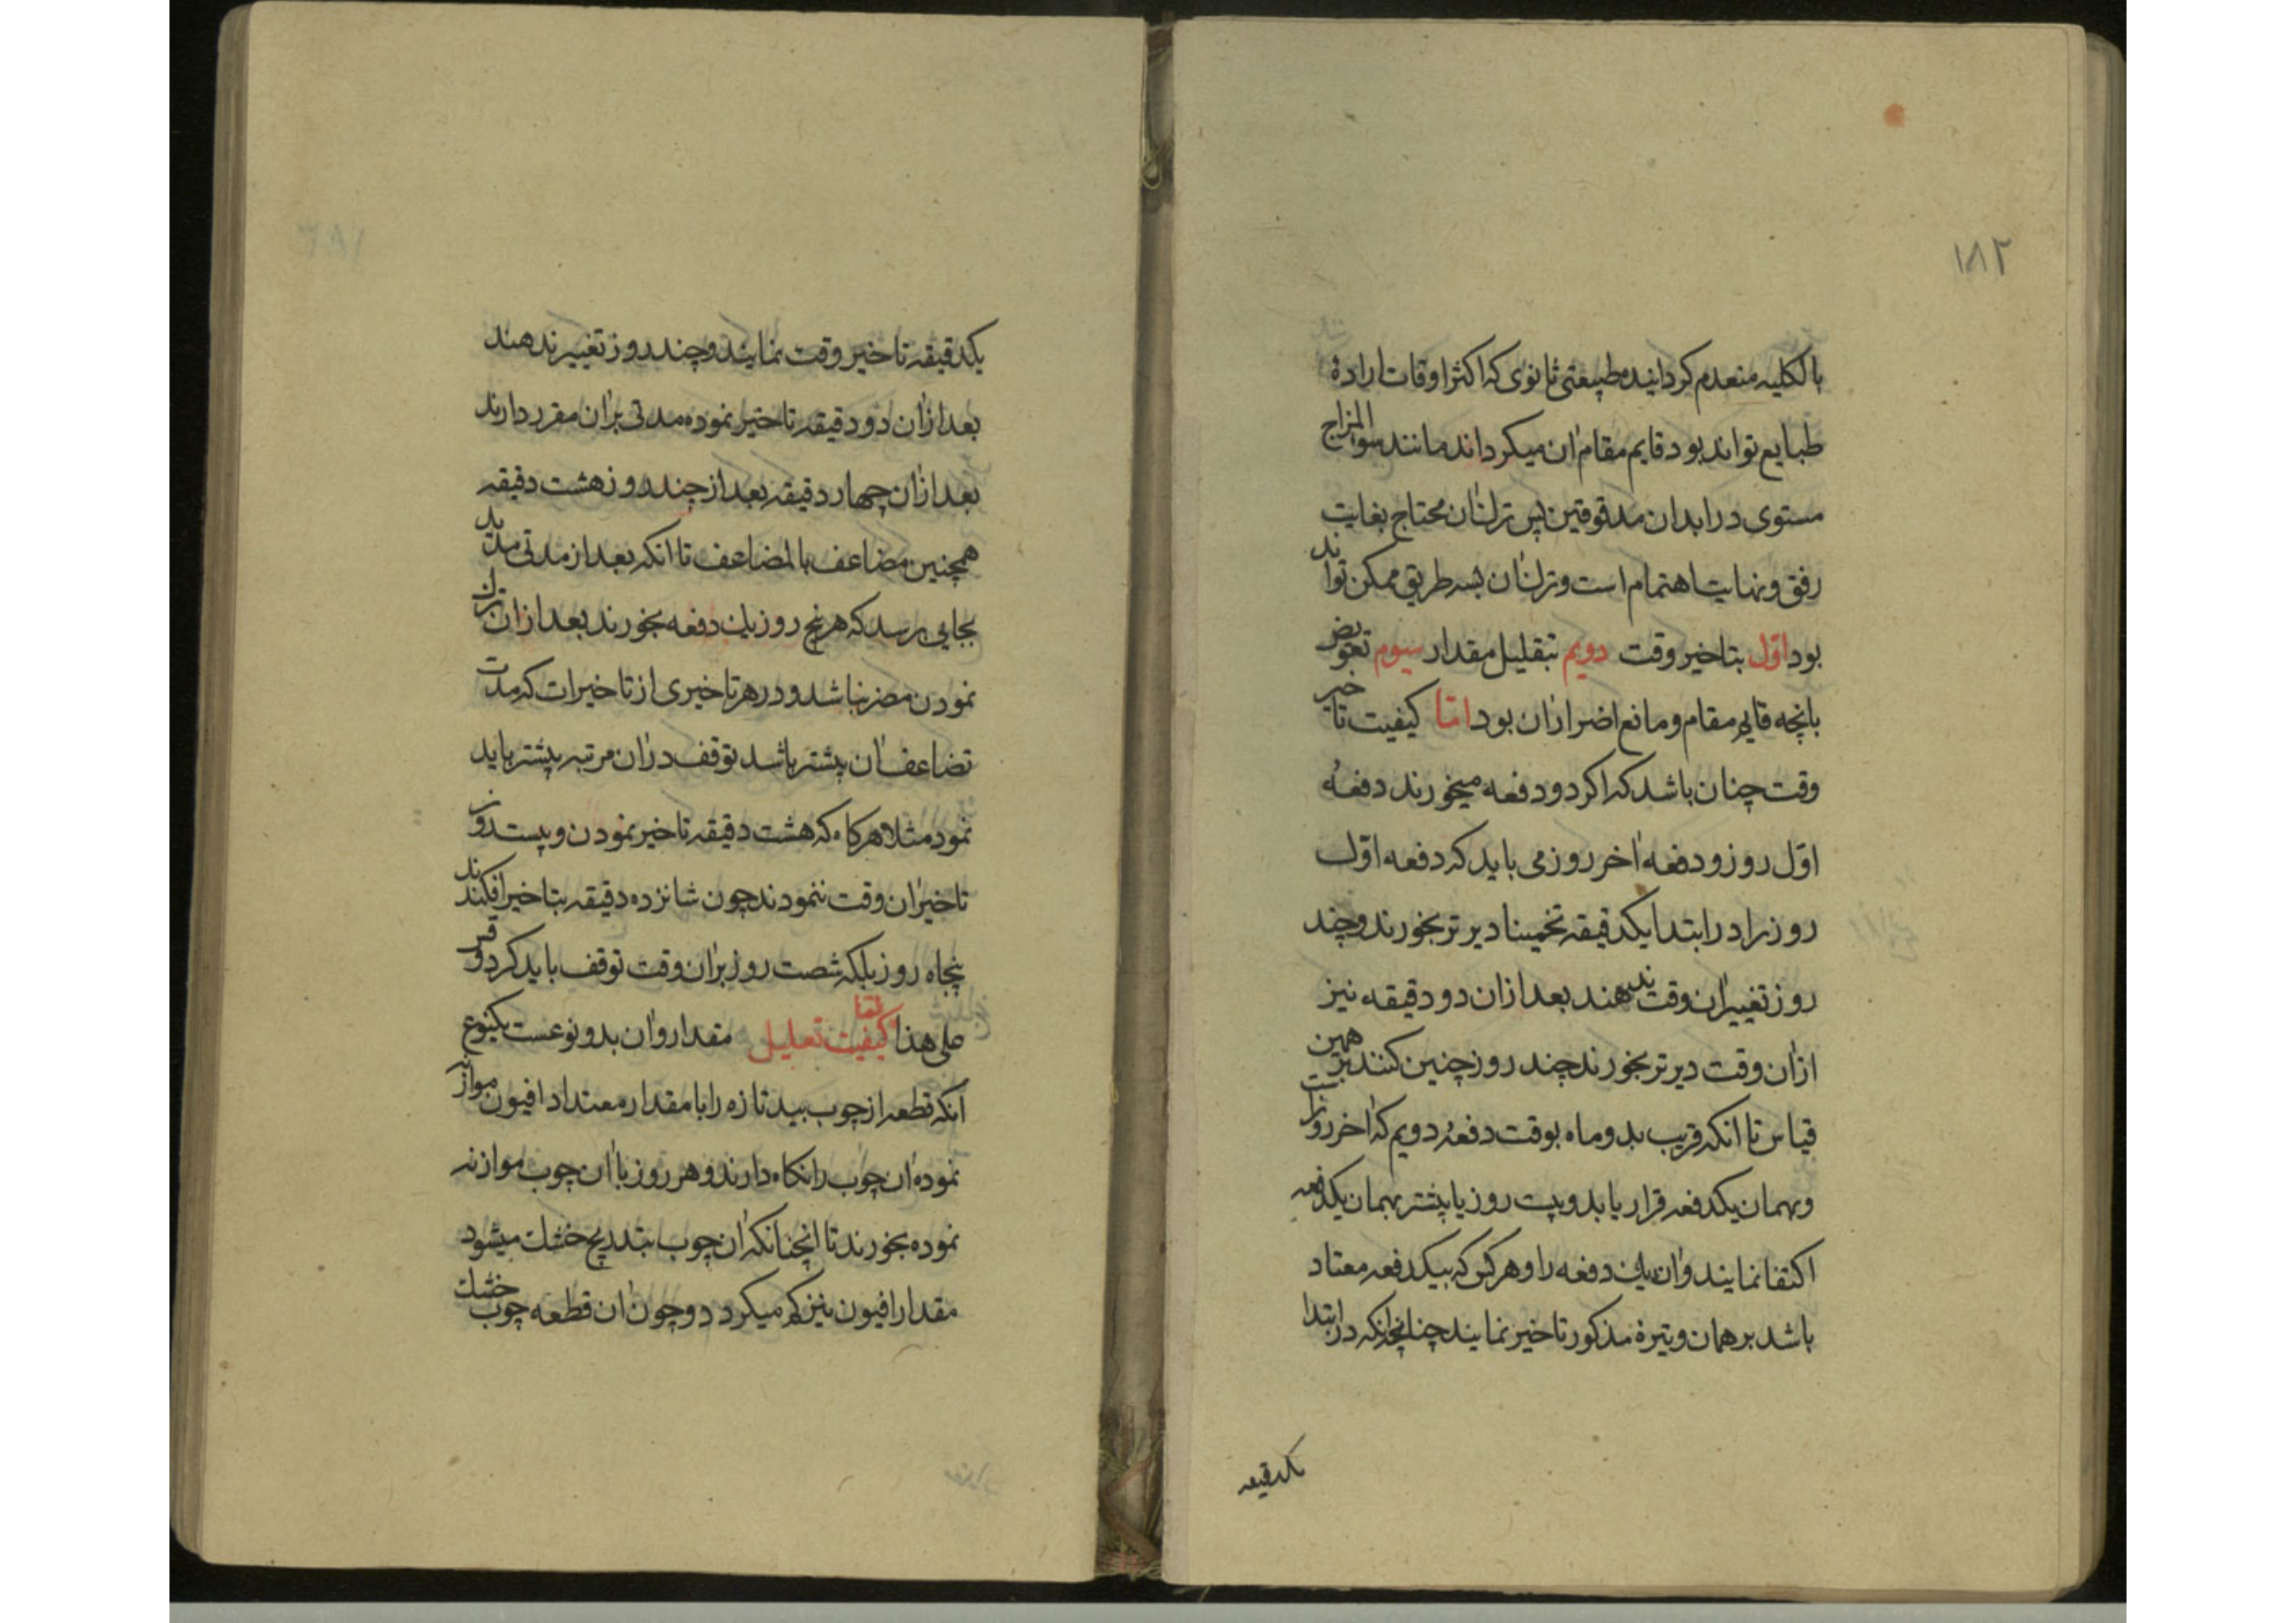 ۱۸۲
بالکلیه منعدم کردانیده طبیعتی ثانوی که اکثر اوقات ارادهٔ
طبایع تواند بود قایم مقام آن میکرداند مانند سوالمزاج
مستوی در ابدان مدقوقین پس ترک آن محتاج بغایت
رفق و نهایت اهتمام است و ترک آن بسه طریق ممکن تواند
بود اوّل بتاخیر وقت دویم بتقلیل مقدار سیوم تعویض
بانچه قایم مقام و مانع اضرار آن بود امّا کیفیت تاخیر
وقت چنان باشد که اکر دو دفعه میخورند دفعهٔ
اوّل روز و دفعه آخر روز می باید که دفعه اوّل
روز را در ابتدا یکدقیقه تخمینا دیرتر بخورند و چند
روز تغییر آن وقت ندهند بعد ازان دو دقیقه نیز
از آن وقت دیرتر بخورند چند روز چنین کنند بر همین
قیاس تا آنکه قریب بدو ماه بوقت دفعهٔ دویم که آخر روز است
و بهمان یکدفعه قرار یابد و بیست روز یا بیشتر بهمان یکدفعه
اکتفا نمایند و آن یک دفعه را و هر کس که بیکدفعه معتاد
باشد بر همان وتیرهٔ مذکور تاخیر نمایند چنانچه آنکه در ابتدا
یکدقیقه
یکدقیقه تاخیر وقت نمایند و چند روز تغییر ندهند
بعد ازان دو دقیقه تاخیر نموده مدتی بران مقرر دارند
بعد ازان چهار دقیقه بعد از چند روز هشت دقیقه
همچنین مضاعف بالمضاعف تا آنکه بعد از مدتی مدید
بجایی برسد که هر پنج روز یک دفعه بخورند بعد ازان ترک
نمودن مضر نباشد و در هر تاخیری از تاخیرات که مدت
تضاعف آن بیشتر باشد توقف در آن مرتبه بیشتر باید
نمود مثلا هرکاه که هشت دقیقه تاخیر نمودن و بیست روز
تاخیر آن وقت ننمودند چون شانزده دقیقه بتاخیر افکندند
پنجاه روز بلکه شصت روز بران وقت توقف باید کرد و قس
علی هذا و امّا کیفیت تعلیل مقدار و آن بدو نوعست یکنوع
آنکه قطعه از چوب بید تازه را با مقدار معتاد افیون موازنه
نموده آن چوب را نکاه دارند و هر روز با آن چوب موازنه
نموده بخورند تا انچنانکه آن چوب بتدریج خشک میشود
مقدار افیون نیز کم میکردد و چون آن قطعه چوب خشک